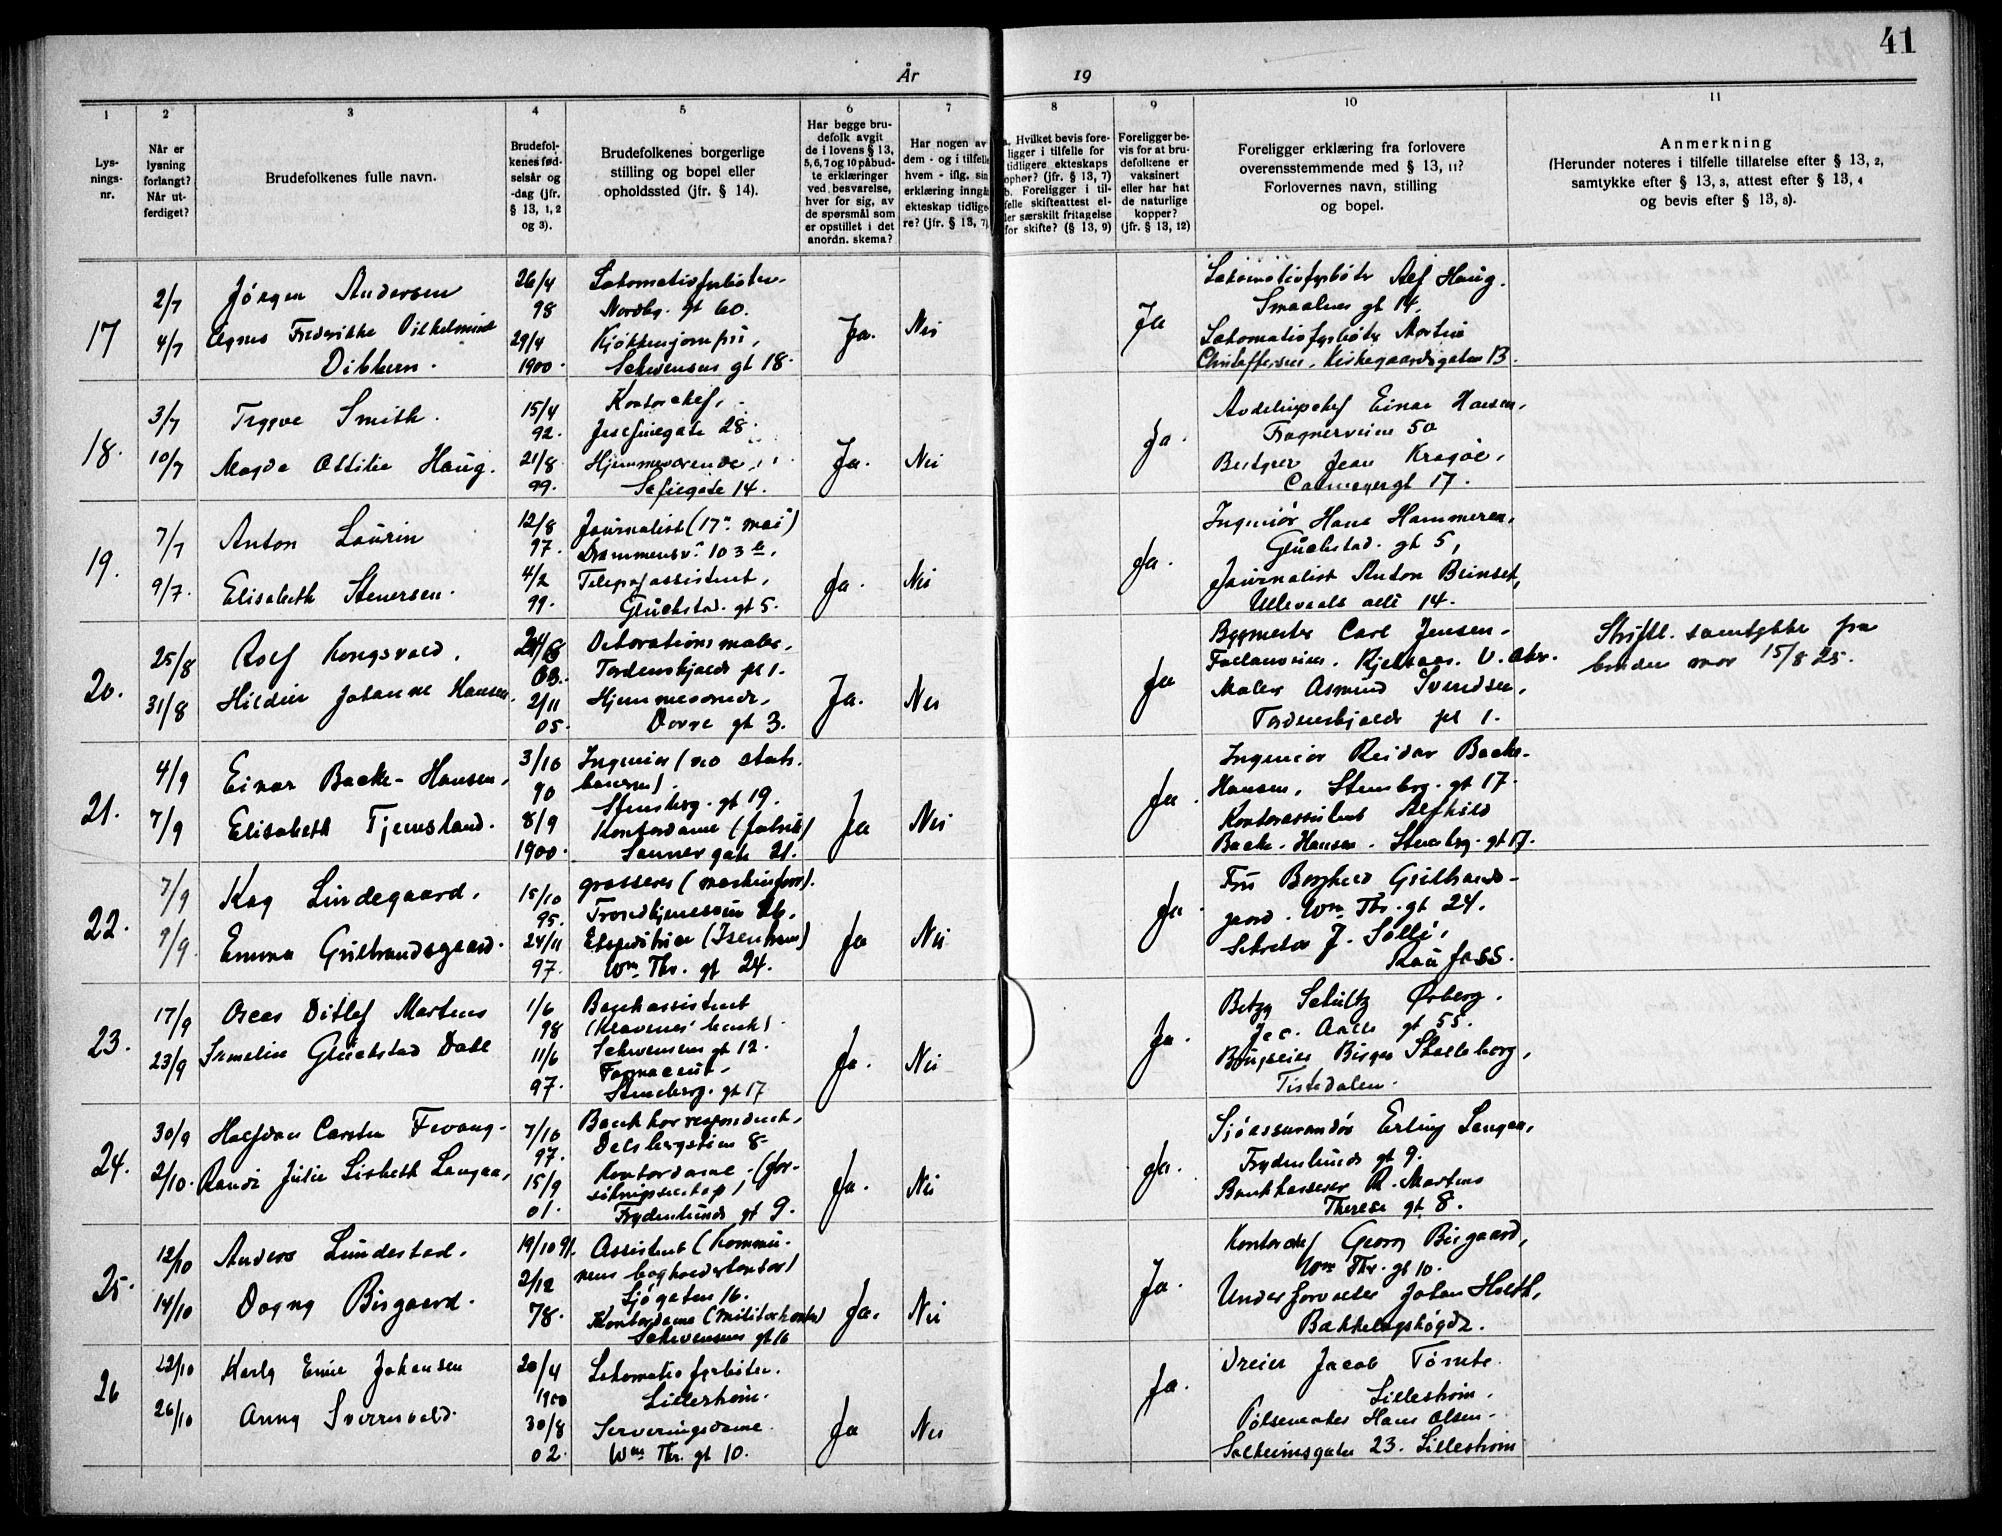 41
År 19
1 2 3 4 5 6 7 8 9 10 11
Lys-
nings-
nr.
Når er
lysning
forlangt?
Når ut-
ferdiget?
Brudefolkenes fulle navn.
Brudefol-
kenes fød-
selsår og
-dag (jfr.
§ 13, 1, 2
og 3).
Brudefolkenes borgerlige
stilling og bopel eller
opholdssted (jfr. § 14).
Har begge bru-
defolk avgit
de i lovens § 13,
5, 6, 7 og 10 påbud-
te erklæringer
ved besvarelse,
hver for sig, av
de spørsmål som
er opstillet i det
anordn. skema?
Har nogen av
dem - og i tilfelle
hvem - iflg. sin
erklæring inngå
ekteskap tidlige-
re? (jfr. § 13, 7)
a. Hvilket bevis fore-
ligger i tilfelle for
tidligere ekteskaps
opher? (jfr. § 13, 7)
b. Foreligger i til-
felle skifteattest el-
ler særskilt fritagelse
for skifte? (§ 13, 9)
Foreligger be-
vis for at bru-
defolkene er
vaksinert
eller har hat
de naturlige
kopper?
(jfr. § 13, 12)
Foreligger erklæring fra forlovere
overensstemmende med § 13, 11?
Forlovernes navn, stilling
og bopel.
Anmerkning
(Herunder noteres i tilfelle tillatelse efter § 13, 2,
samtykke efter § 13, 3, attest efter § 13, 4
og bevis efter § 13, 8).
17
2/7
4/7
Jörgen Andersen
Agnes Fredrikke Vilhelmine
26/4
98
29/4
1900.
Lokomotivfyrböter
Nordbg. gt 60.
Kjökkenjomfru,
Schwensens gt 18.
Ja. Nei
Ja
Lokomotivfyrböter Alf Haug.
Smaalens gt 14.
Lokomotivfyrböter Martin
Christoffersen, Kirkegaardsgaten 13.
18.
3/7
10/7
Trygve Smith.
Magda Ottilie Haug.
15/4
92.
21/8
99.
Kontorchef,
Josefinegate 28.
Hjemmeværende,
Sofiegate 14.
Ja. Nei
Ja.
Avdelingschef Einar Hansen,
Frognerveien 50
Bestyrer Jean Kragöe,
Carmeyergt 17.
19.
7/7
9/7.
Anton Laurin
Elisabeth Stenersen.
12/8
97.
4/2
99.
Journalist (17. mai)
Drammensv. 103 b,
Telegrafassistent,
Glückstad. gt 5.
Ja. Nei
Ja.
Ingeniör Hans Hammeren,
Glückstad. gt 5,
Journalist Anton Beinset,
Ullevaals allé 14.
20.
25/8
31/8
Rolf Kongsvold.
Hildur Johanne Hansen.
24/8
03.
2/11
05.
Dekorationsmaler,
Tordenskjolds pl 1.
Hjemmeværende,
Dovre gt 3.
Ja. Nei
Ja
Bygmester Carl Jensen.
Kjelsaas. V. Aker.
Maler Asmund Svendsen,
Tordenskjolds pl 1.
Skriftl. samtykke fra
brudens mor 15/8 25.
21.
4/9
7/9
Einar Backe-Hansen,
Elisabeth Tjemsland.
3/10
90
8/9
1900.
Ingeniör (ved stats-
banerne).
Stensberg. gt 19.
Kontordame (fabrik)
Sannergate 21.
Ja Nei
Ja.
Ingeniör Reidar Backe-
Hansen, Stensberg. gt 17.
Kontorassistent Alfhild
Backe-Hansen. Stensberg. gt 17.
22.
7/9
9/9.
Kay Lindegaard.
Emma Gulbrandsgaard.
15/10
95.
24/11
97.
grosserer (maskinforr).
Ekspeditrice
Wm. Thr. gt 24.
Ja Nei
Ja.
Fru Borghild Gulbrands-
gaard. Wm. Thr. gt 24.
Sekretær J. Sollé,
Raufoss.
23.
17/9
23/9
Oscar Ditlef Martens
Glückstad Dahl
1/6
98
11/6
97.
Bankassistent
Schwensens gt 12.
Farmaceut.
Stensberg. gt 17
Ja. Nei
Ja.
Betzy Schultz Ørberg.
Jac. Aalls gt 55.
Bruseier Birger Stolleborg,
Tistedalen.
24.
30/9
2/10.
Halfdan Carsten Fevang.
Randi Julie Lisbeth Langaa,
7/10
97.
15/9
01.
Bankkorrespondent,
Delsbergstien 8.
Kontordame. (for-
sikringsselskap)
Frydenlunds gt 9.
Ja. Nei
Ja.
Sjöassurandör Erling Langaa,
Frydenlunds gt 9.
Bankkasserer R. Martens
Therese gt 8.
25.
12/10
14/10
Anders Lundestad.
Dagny Bisgaard.
19/10 91.
2/12
78.
Assistent (Kommu-
nens bogholderkontor)
Sjögaten 16.
Kontordame (Militærkontor)
Schwensens gt 16
Ja. Nei
Ja.
Kontorchef Georg Bisgaard,
Wm Thr. gt 10.
Underforvalter Johan Holth,
Bækkelagshögda.
26
22/10
26/10
Karly Emil Johansen
Anny Sverresvold.
20/4
1900
30/8
02.
Lokomotivfyrböter.
Lilleström.
Serveringsdame.
Wm Thr. gt 10.
Ja Nei
Ja.
Dreier Jacob Tömte.
Lilleström.
Pölsemaker Hans Olsen.
Solheimsgaten 23. Lilleström